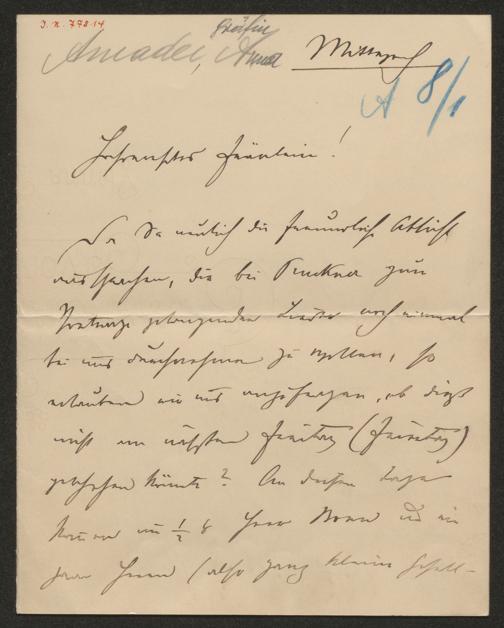 I. N. 77814
Gräfin
Amadei, Anna
Mittwoch
A 8/1
Hochverehrtes Fräulein!
Da Sie neulich die freundliche Absicht
aussprachen, die bei Bruckner zum
Vortrage gelangenden Lieder noch einmal
bei uns durchnehmen zu wollen, so
erlauben wir uns anzufragen, ob dieß
nicht am nächsten Freitag (Freitag)
geschehen könnte? An diesem Tage
kommen um ½ 8 Herr und ein
paar Herren (also ganz kleine Gesell-